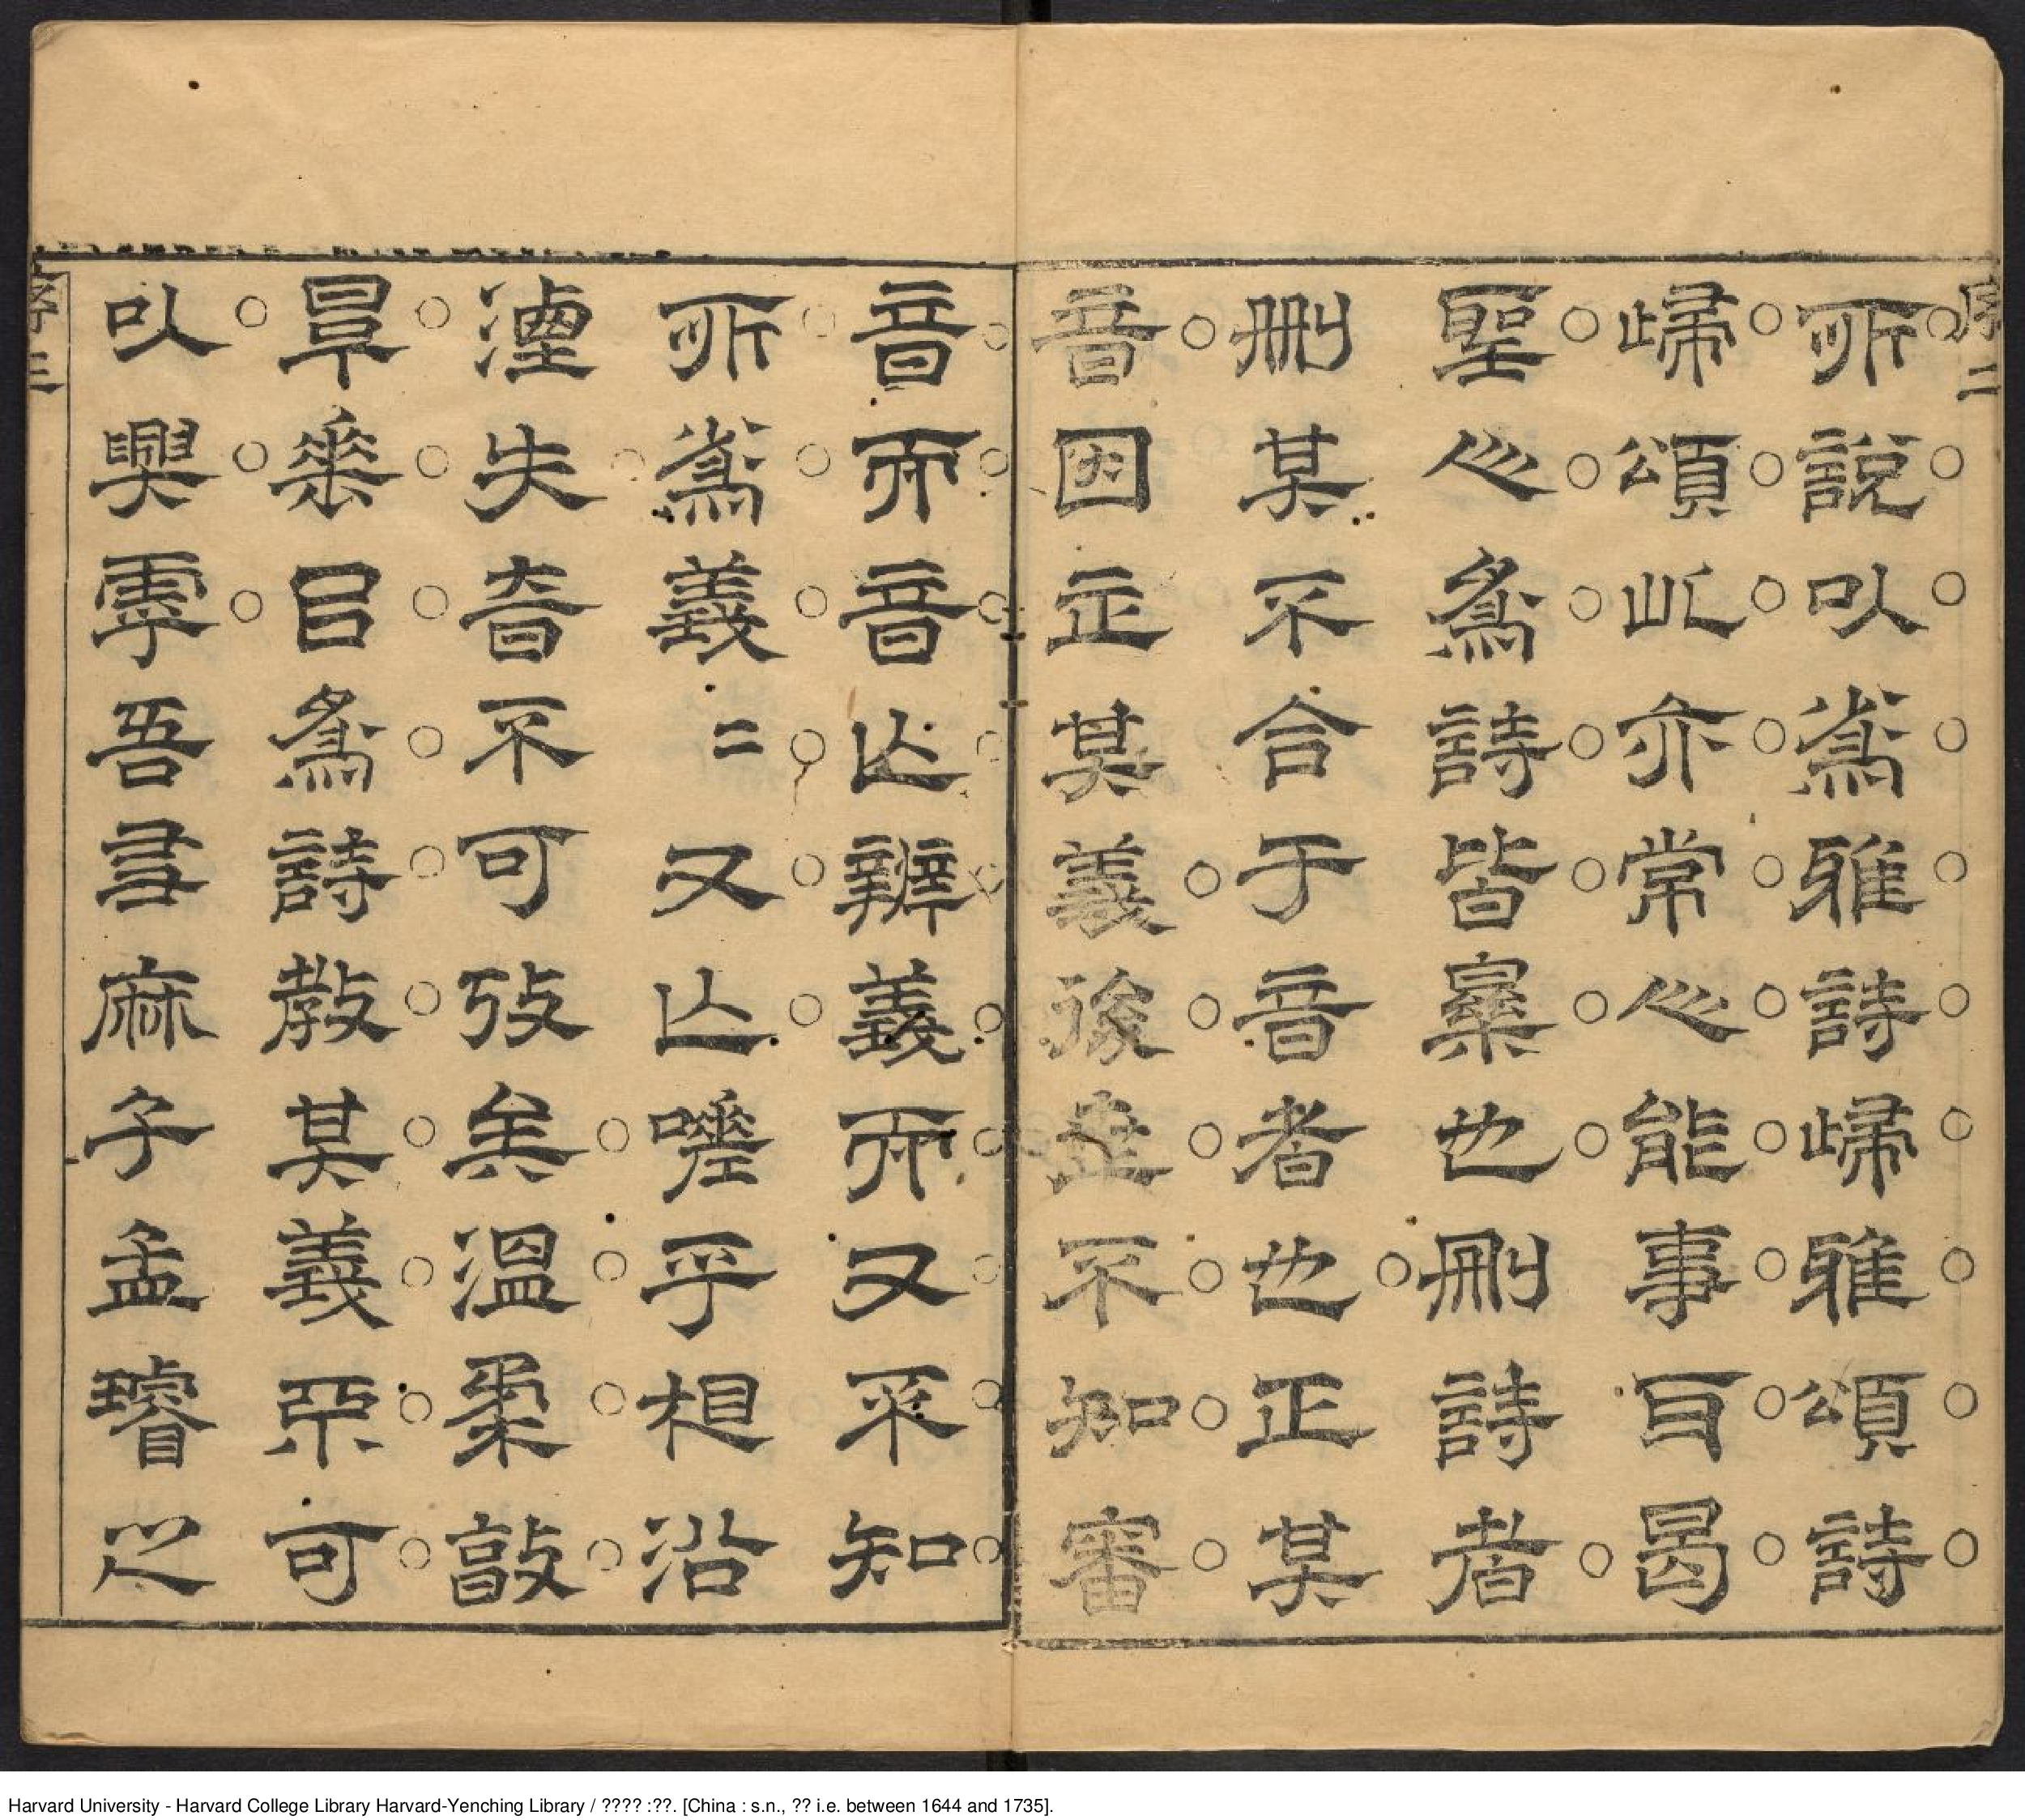 序二
所說以為雅詩歸雅頌詩
歸頌此亦常心能事曰曷
聖心為詩皆罪也刪詩者
刪其不合于音者也正其
音因正其義後世不知審
音而音亡辨義而又不知
所為義二又亡嗟乎想沿
湮失音不可攷矣溫柔敦
厚垂目為詩教其義亦可
以興雩吾君麻子孟璿之
序三
Harvard University - Harvard College Library Harvard-Yenching Library / ???? :??. [China : s.n., ?? i.e. between 1644 and 1735].